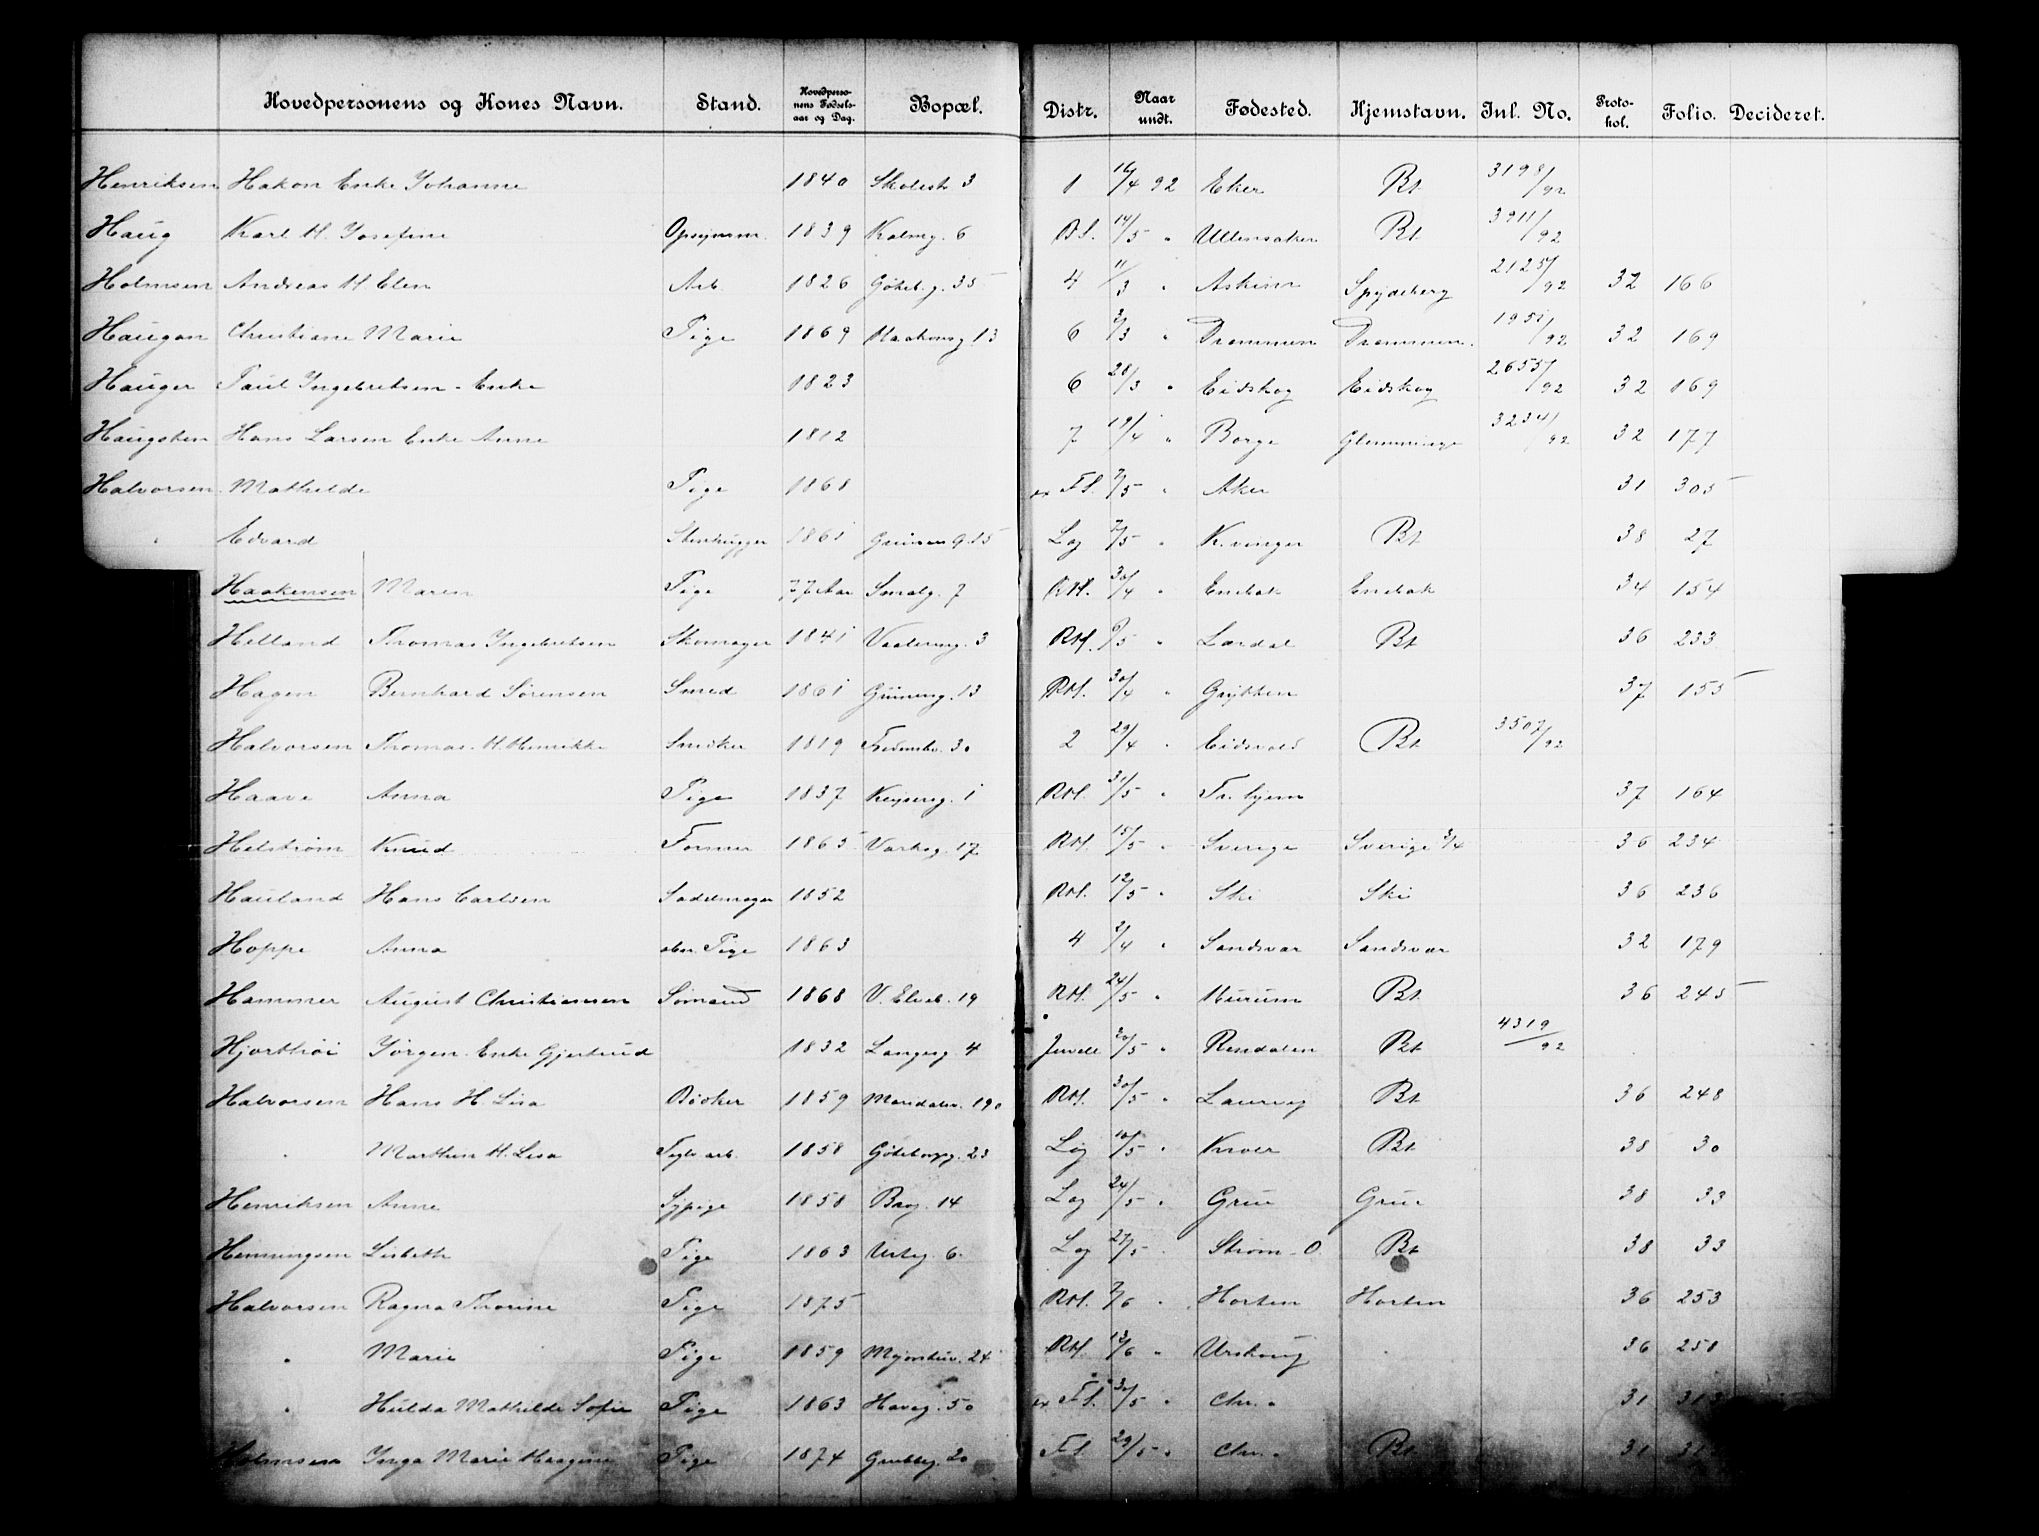 Hovedpersonens og Kones Navn. Stand. Hovedperso-nens Fødsels-aar og Dag. Bopæl. Distr. Naar undt. Fødested. Hjemstavn. Inl. No. Proto-kol. Folio. Decideret.
Henriksen Hakon Enke Johanne 1840 Skolest. 3 1 16/4 92 Eker Bt 3198/92
Haug Karl H. Josefine Opsynsm. 1839 Kalmg. 6 14/5 " Ullensaker Bt 3911/92
Holmsen Andreas H Elen Arb. 1826 Götebg. 35 4 11/3 " Askim Spydeberg 2125/92 32 166
Haugan Christiane Marie Pige 1869 Haakonsg. 13 6 2/3 " Drammen Drammen. /92 32 169
Hauger Paul Ingebriktsen - Enke 1823 6 28/3 " Eidskog Eidskog 2655/92 32 169
Haugsten Hans Larsen Enke Anne 1812 7 19/4 " Borge Glemminge 3234/92 32 177
Halvorsen Mathilde Pige 1868 ex FS. 7/5 " Aker 31 305
" Edvard Stenhugger 1861 Grünerg. 15 Lag 7/5 " K.vinger Bt 38 27
Haakensen Maren Pige 77 Aar Smalg. 7 RH. 30/4 " Enebak Enebak 34 154
Helland Thomas Ingebretsen Skomager 1841 Vaalereng. 3 RH. 6/5 " Lærdal Bt 36 233
Hagen Bernhard Sørensen Smed 1861 Grünerg. 13 RH. 30/4 " Grytten 37 155
Halvorsen Thomas. H. Henrikke Snedker 1819 Fredensbr. 30 2 29/4 " Eidsvold Bt 3507/92
Haave Anna Pige 1837 Keyserg. 1 RH. 31/5 " Tr.hjem 37 164
Helstrøm Knud Former 1865 Varksg. 17 RH. 15/5 " Sverige Sverige 3/4 36 234
Hauland Hans Carlsen Sadelmager 1852 RH. 12/5 " Ski Ski 36 236
Hoppe Anna Pige 1863 4 2/4 " Sandsvær Sandsvær 32 179
Hammer August Christiansen Sømand 1868 V. Elveb. 19 RH. 24/5 " Hurum Bt 36 245
Hjorthøi Jørgen. Enke Gjertrud 1832 Langesg. 4 20/5 " Rendalen Bt 4319/92
Halvorsen Hans H. Lisa Bødker 1859 Maridalsv. 190 RH. 30/5 " Laurvig Bt 36 248
" Marthin H. Lisa Teglv. arb. 1858 Göteborgg. 23 Lag 10/5 " Kroer Bt 38 30
Henriksen Anne Sypige 1858 Brog. 14 Lag 24/5 " Grue Grue 38 33
Henningsen Lisbeth Pige 1863 Urteg. 6. Lag 27/5 " Strøm - O. Bt 38 33
Halvorsen Ragna Thorine Pige 1875 RH. 2/6 " Horten Horten 36 253
" Marie Pige 1859 RH. 13/6 " Urskoug 36 258
" Hulda Mathilde Sofie Pige 1863 Haveg. 50 ex FS. 30/5 " Chr.a 31 313
Holmsen Inga Marie Pige 1874 Grubbeg. 20 FS. 29/5 " Chr.a Bt 31